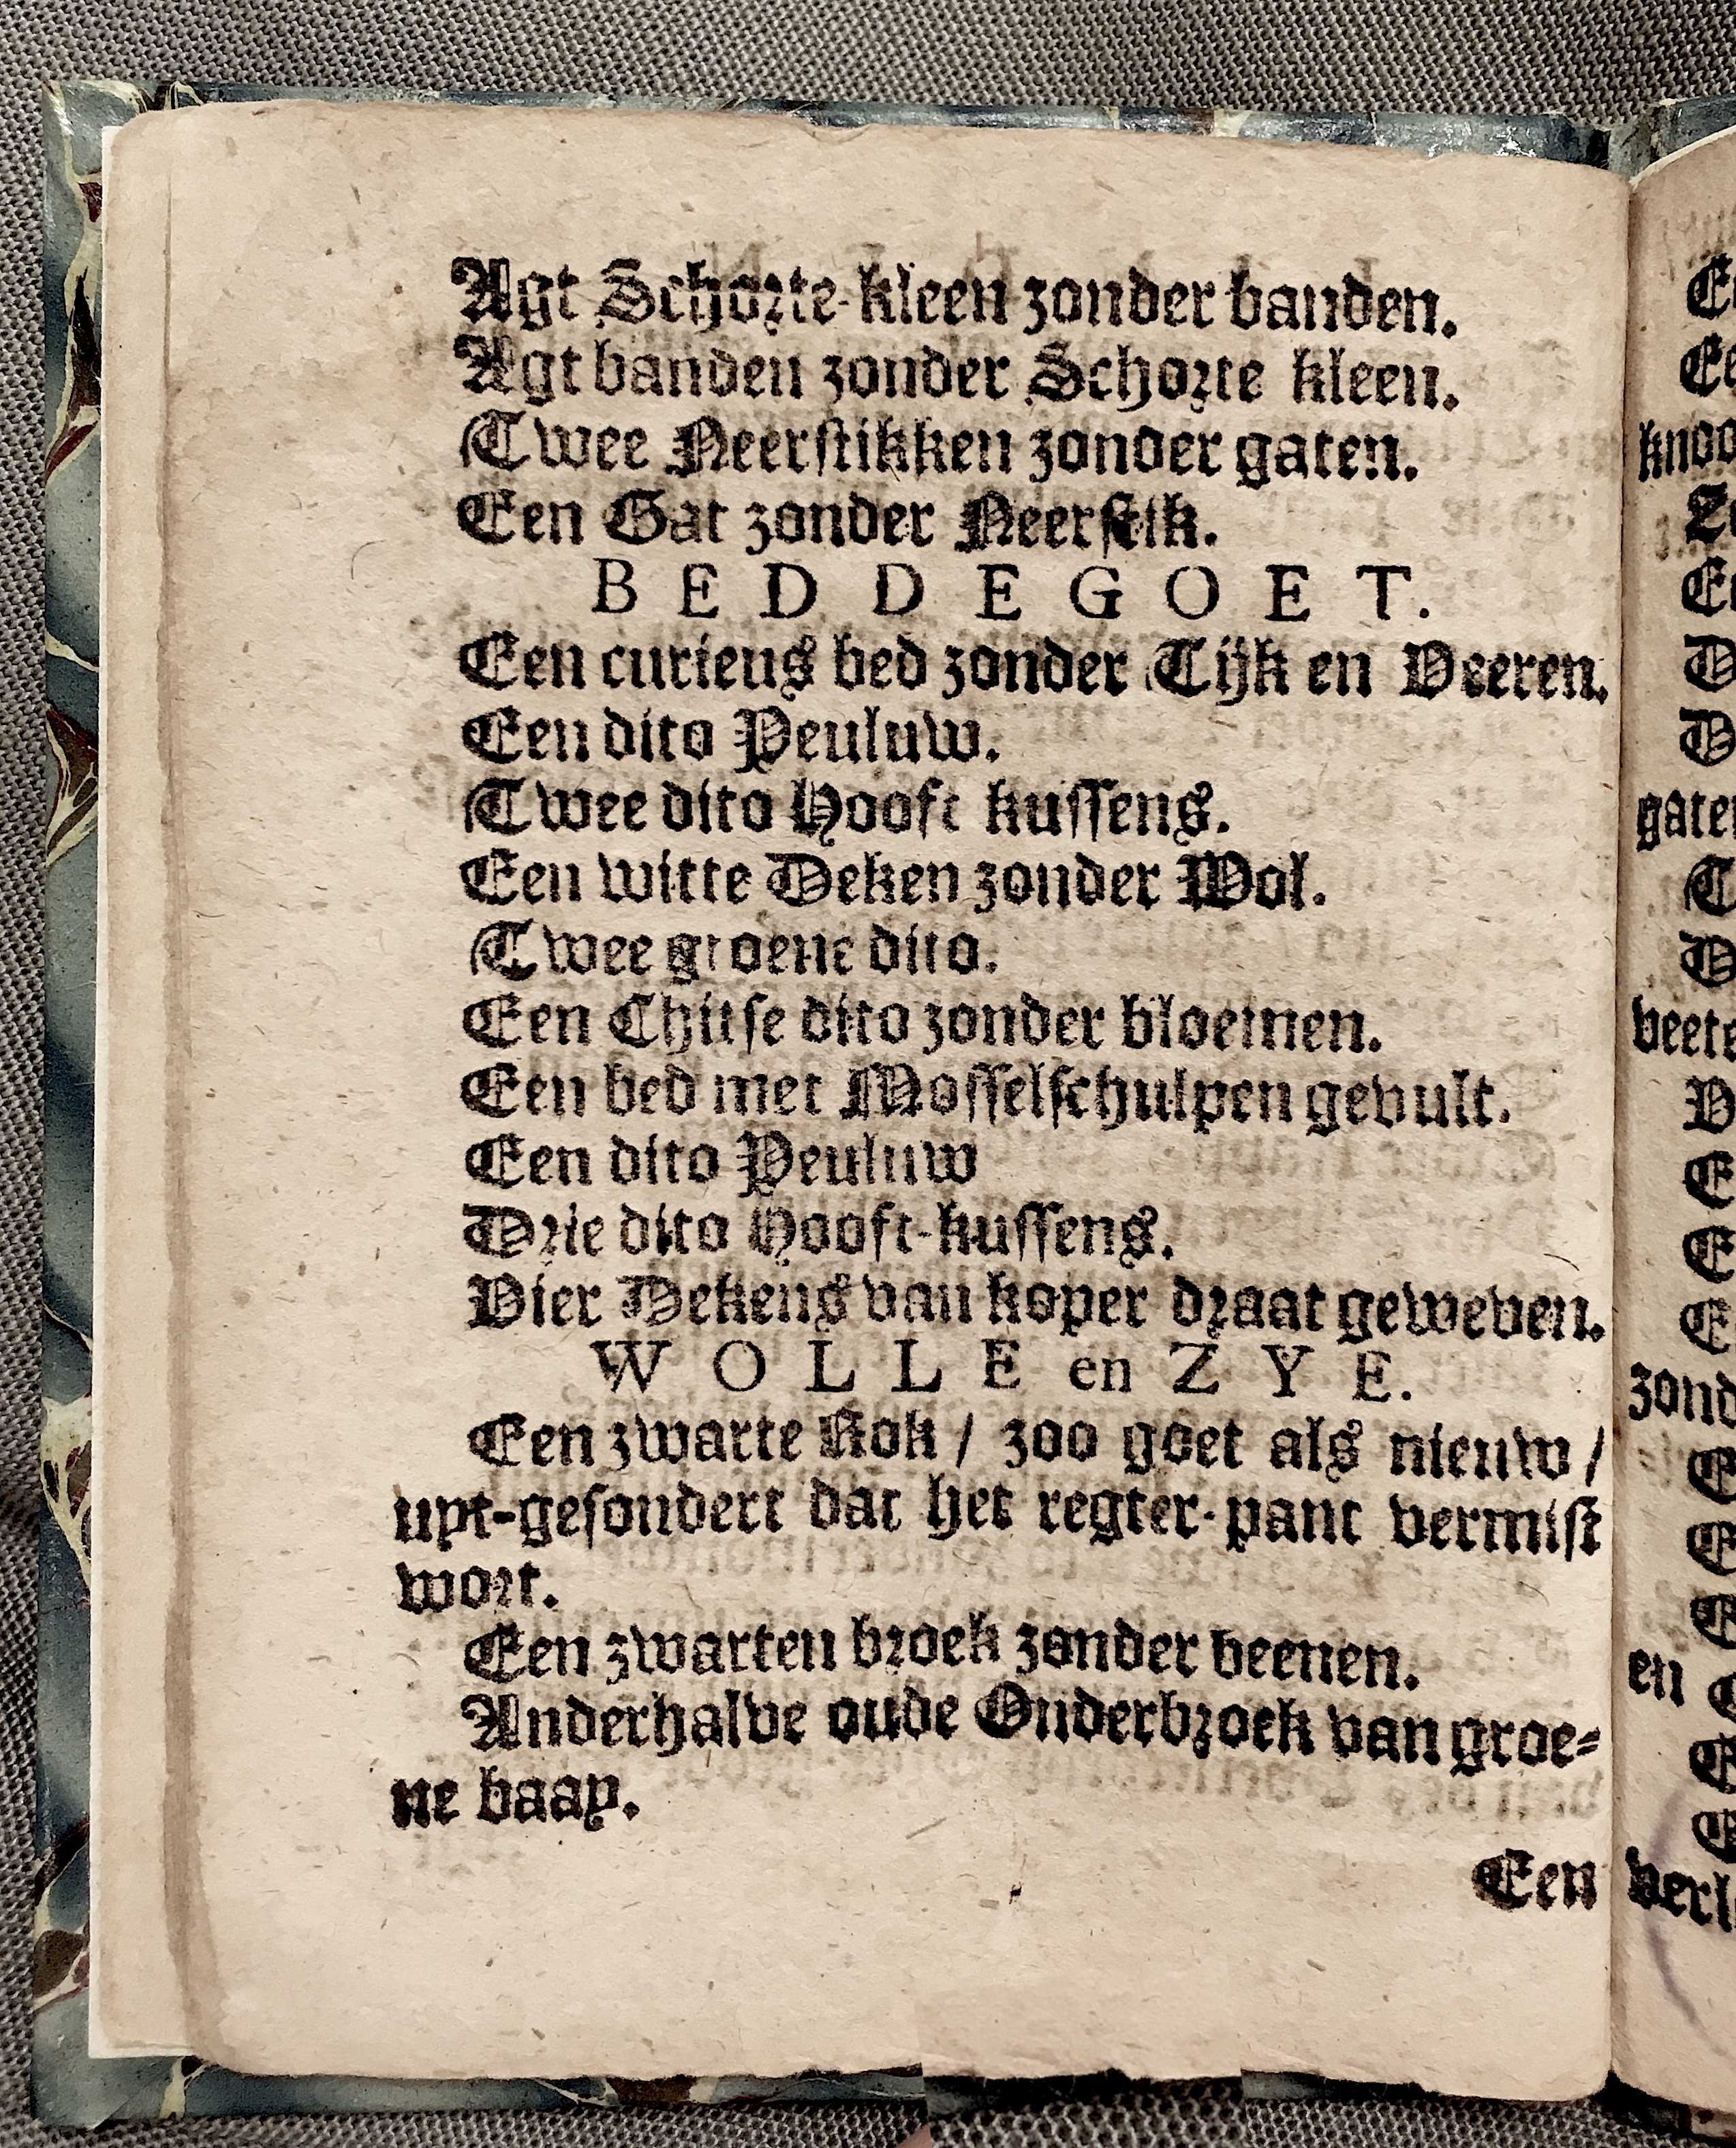 Agt Schorte-kleen zonder banden.
Agt banden zonder Schorte kleen.
Twee Neerstikken zonder gaten.
Een Gat zonder Neerstik.
BEDDEGOET.
Een curieus bed zonder Tijk en Veeren.
Een dito Peuluw.
Twee dito Hooft kussens.
Een witte Deken zonder Wol.
Twee groene dito.
Een Chitse dito zonder bloemen.
Een bed met Mosselschulpen gevult.
Een dito Peuluw
Drie dito Hooft-kussens.
Vier Dekens van koper draat geweven.
WOLLE en ZYE.
Een zwarte Rok / zoo goet als nieuw /
uyt-gesondert dat het regter-pant vermist
wort.
Een zwarten broek zonder beenen.
Anderhalve oude Onderbroek van groe-
ne baay.
Een